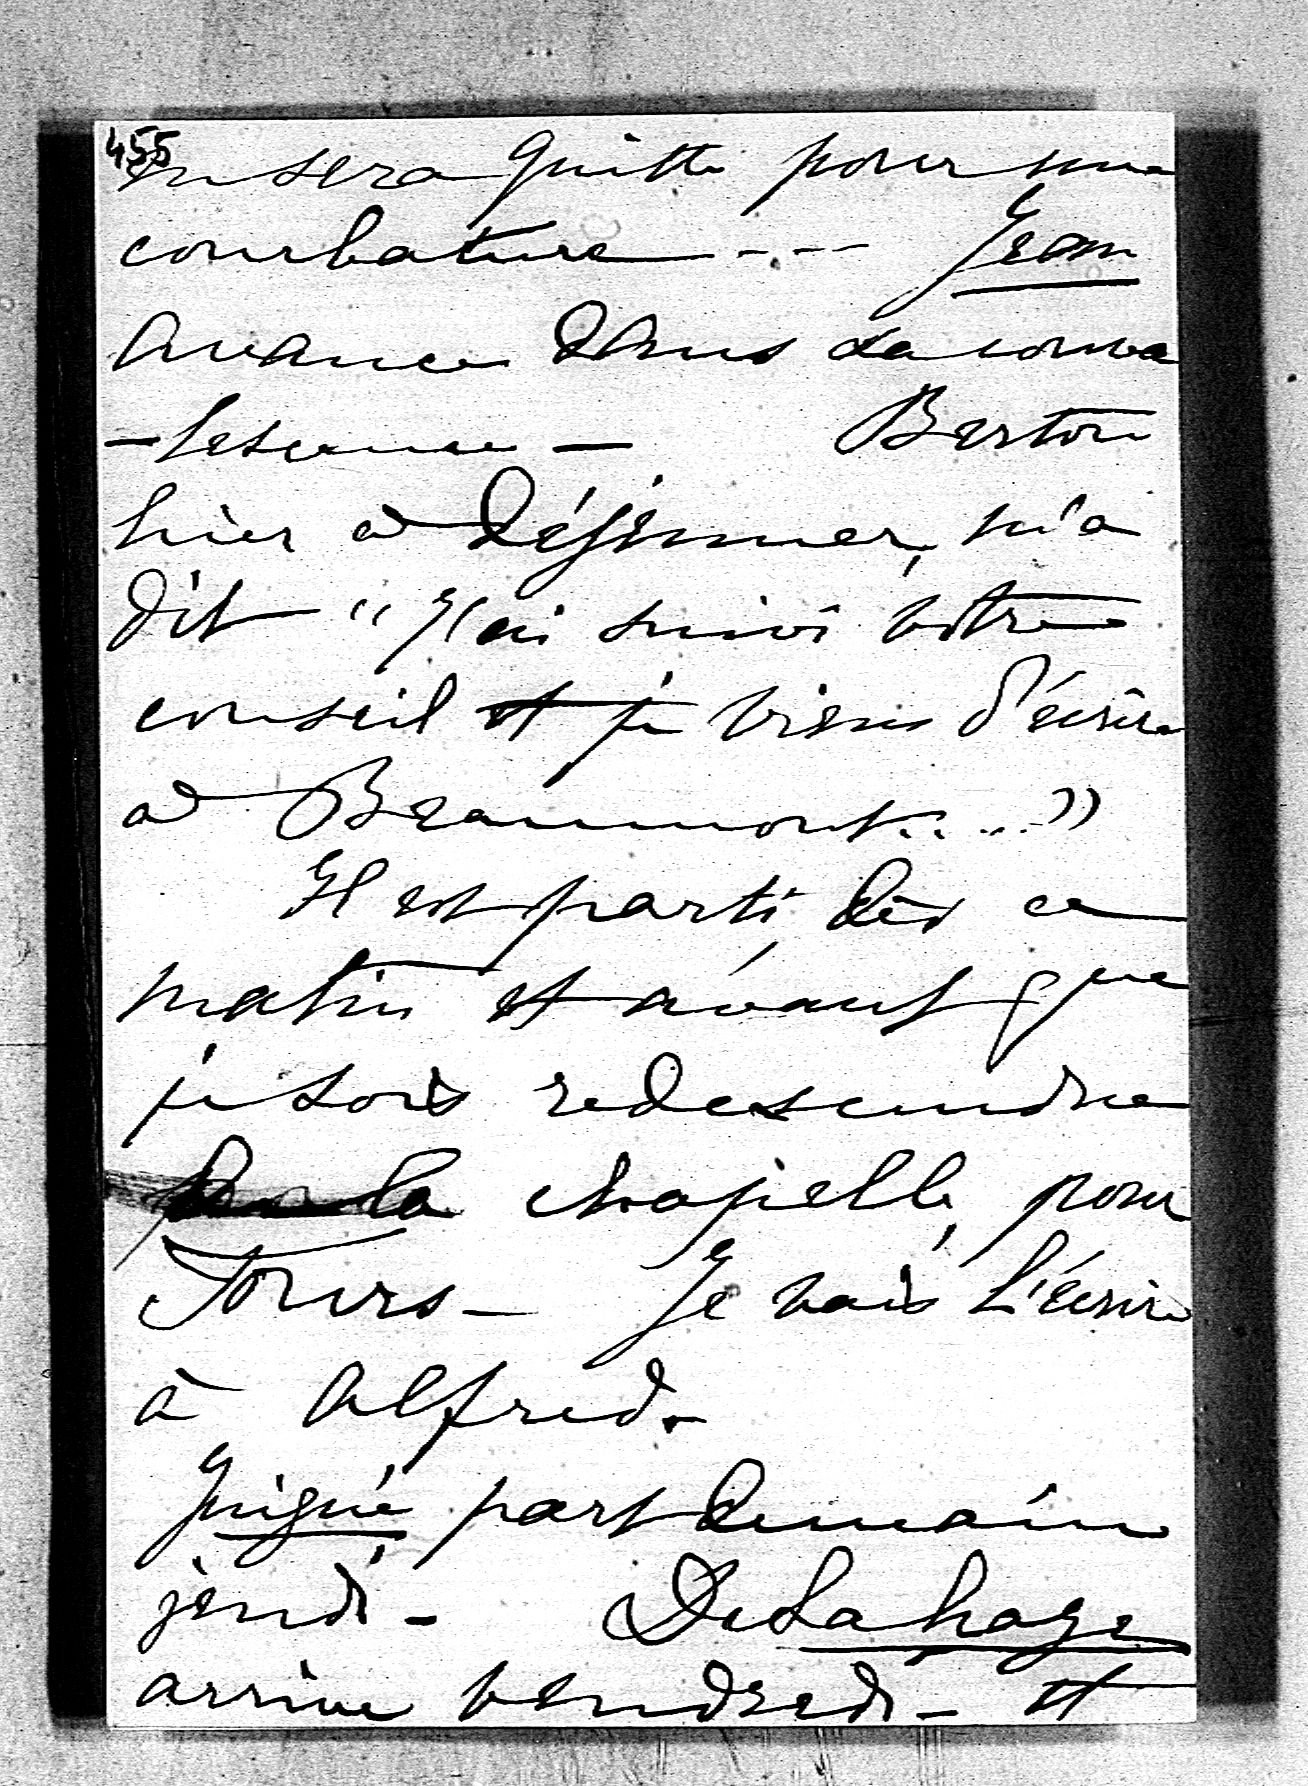 455
en sera quitte pour une
courbature - - - Jean
avance dans sa conva
-lescence - Berton
hier à déjeuner, m'a
dit "J'ai suivi votre
conseil et je viens d'écrire
à Beaumont....."
Il est parti, dès ce
matin et avant que
je sois redescendre
de la chapelle, pour
Tours - Je vais l'écrire
à Alfred.
Guigné part demain
jeudi - De La haye
arrive vendredi - et